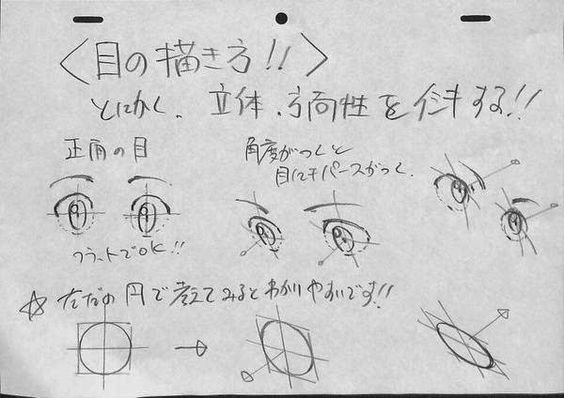 〈目の描き方!!〉
とにかく、立体、方向性を イシキする!!
正面の目
フラットでOK!!
角度がつくと
目にもパースがつく。
☆ ただの円で考えてみるとわかりやすいです!!